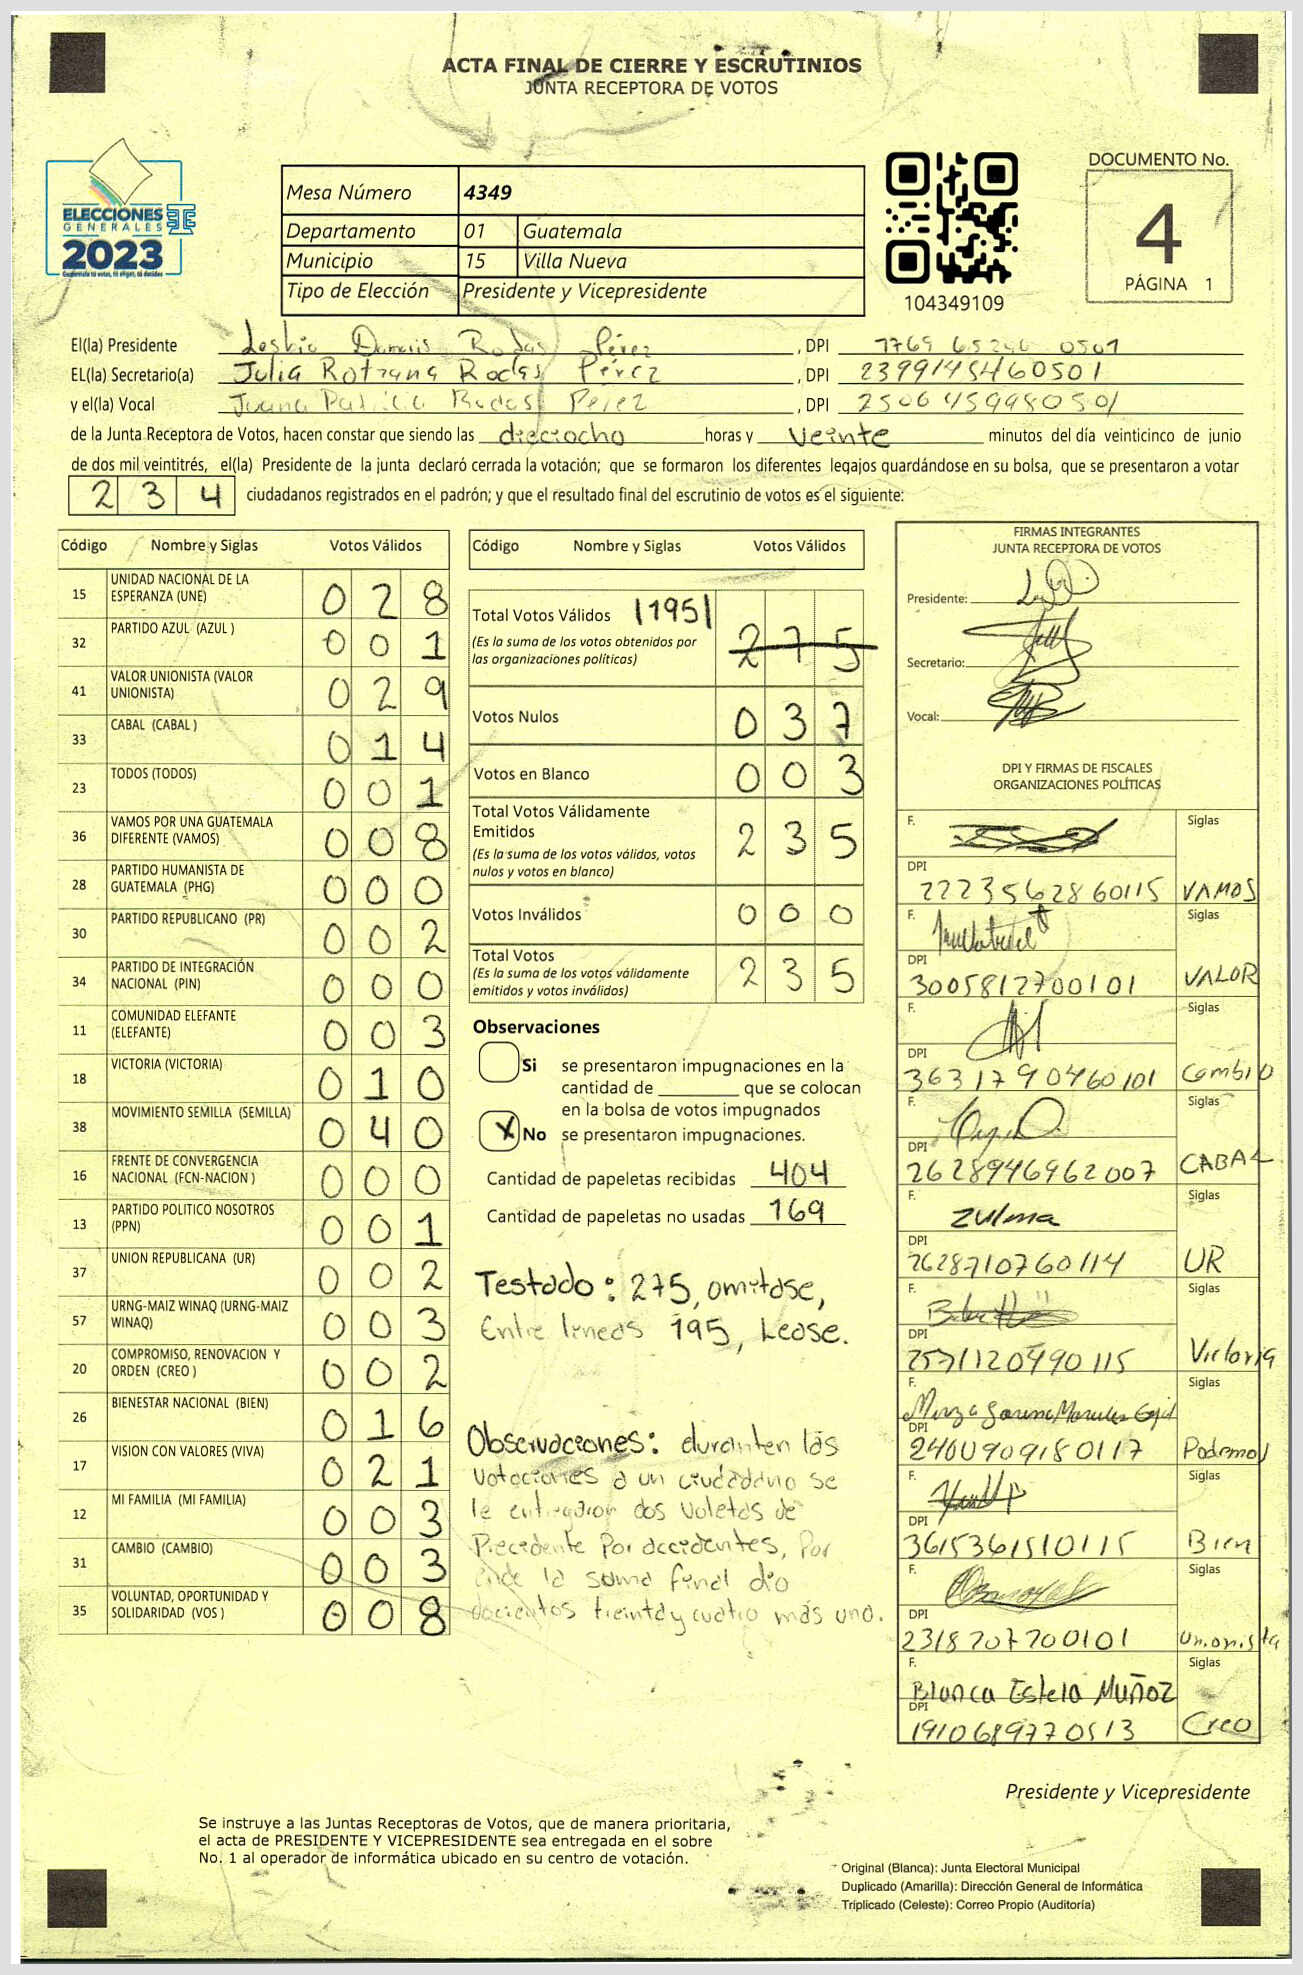 ACTA FINAL DE CIERRE Y ESCRUTINIOS
JUNTA RECEPTORA DE VOTOS
ELECCIONES
GENERALES
2023
Mesa Número 4349
Departamento 01 Guatemala
Municipio 15 Villa Nueva
Tipo de Elección Presidente y Vicepresidente
104349109
DOCUMENTO No.
4
PÁGINA 1
El(la) Presidente Lesbia Damaris Rodas Pérez, DPI 0501
EL(la) Secretario(a) Julia Rodas Pérez, DPI 2399145460501
y el(la) Vocal Juana Patricia Rodas Perez, DPI 2506459980501
de la Junta Receptora de Votos, hacen constar que siendo las dieciocho horas y veinte minutos del día veinticinco de junio
de dos mil veintitrés, el(la) Presidente de la junta declaró cerrada la votación; que se formaron los diferentes legajos guardándose en su bolsa, que se presentaron a votar
234 ciudadanos registrados en el padrón; y que el resultado final del escrutinio de votos es el siguiente:
Código Nombre y Siglas Votos Válidos
15 UNIDAD NACIONAL DE LA ESPERANZA (UNE) 028
32 PARTIDO AZUL (AZUL ) 001
41 VALOR UNIONISTA (VALOR UNIONISTA) 029
33 CABAL (CABAL ) 014
23 TODOS (TODOS) 001
36 VAMOS POR UNA GUATEMALA DIFERENTE (VAMOS) 008
28 PARTIDO HUMANISTA DE GUATEMALA (PHG) 000
30 PARTIDO REPUBLICANO (PR) 002
34 PARTIDO DE INTEGRACIÓN NACIONAL (PIN) 000
11 COMUNIDAD ELEFANTE (ELEFANTE) 003
18 VICTORIA (VICTORIA) 010
38 MOVIMIENTO SEMILLA (SEMILLA) 040
16 FRENTE DE CONVERGENCIA NACIONAL (FCN-NACION ) 000
13 PARTIDO POLITICO NOSOTROS (PPN) 001
37 UNION REPUBLICANA (UR) 002
57 URNG-MAIZ WINAQ (URNG-MAIZ WINAQ) 003
20 COMPROMISO, RENOVACION Y ORDEN (CREO ) 002
26 BIENESTAR NACIONAL (BIEN) 016
17 VISION CON VALORES (VIVA) 021
12 MI FAMILIA (MI FAMILIA) 003
31 CAMBIO (CAMBIO) 003
35 VOLUNTAD, OPORTUNIDAD Y SOLIDARIDAD (VOS ) 008
Código Nombre y Siglas Votos Válidos
Total Votos Válidos |195| 275
(Es la suma de los votos obtenidos por
las organizaciones políticas)
Votos Nulos 037
Votos en Blanco 003
Total Votos Válidamente
Emitidos 235
(Es la suma de los votos válidos, votos
nulos y votos en blanco)
Votos Inválidos 000
Total Votos 235
(Es la suma de los votos válidamente
emitidos y votos inválidos)
Observaciones
Si se presentaron impugnaciones en la
cantidad de ________ que se colocan
en la bolsa de votos impugnados
X No se presentaron impugnaciones.
Cantidad de papeletas recibidas 404
Cantidad de papeletas no usadas 169
Testado: 275, omitase,
Entre lineas 195, Lease.
Observaciones: duranten las
votaciones a un ciudadano se
le entregaron dos voletas de
Precidente Por accidentes, Por
ende la suma final dio
docientos treinta y cuatro más uno.
FIRMAS INTEGRANTES
JUNTA RECEPTORA DE VOTOS
Presidente:
Secretario:
Vocal:
DPI Y FIRMAS DE FISCALES
ORGANIZACIONES POLÍTICAS
F. Siglas
DPI
2223562860115 VAMOS
F. Siglas
DPI
3005812700101 VALOR
F. Siglas
DPI
3631790460101 Cambio
F. Siglas
DPI
2628946962007 CABAL
F. Zulma Siglas
DPI
2628710760114 UR
F. Siglas
DPI
2571120490115 Victoria
F. Siglas
DPI
2400909180117 Podemos
F. Siglas
DPI
3615361510115 Bien
F. Siglas
DPI
2318707700101 Unionista
F. Blanca Estela Muñoz Siglas
DPI
1910689770513 Creo
Presidente y Vicepresidente
Se instruye a las Juntas Receptoras de Votos, que de manera prioritaria,
el acta de PRESIDENTE Y VICEPRESIDENTE sea entregada en el sobre
No. 1 al operador de informática ubicado en su centro de votación.
Original (Blanca): Junta Electoral Municipal
Duplicado (Amarilla): Dirección General de Informática
Triplicado (Celeste): Correo Propio (Auditoría)